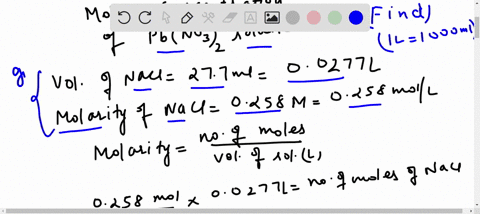 of Pb(NO3)2 solution
Find)
(1L=1000ml)
g.
Vol. of NaCl = 27.7 ml = 0.0277L
Molarity of NaCl = 0.258 M = 0.258 mol/L
Molarity = no. of moles / Vol. of sol. (L)
0.258 mol × 0.0277L = no. of moles of NaCl